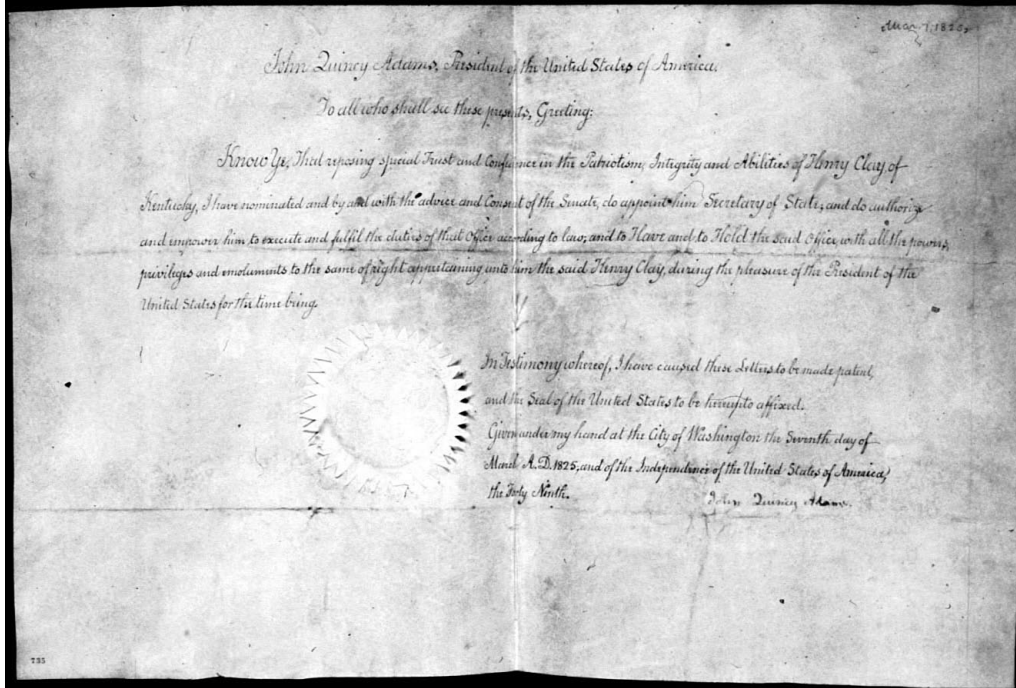 Mar 7, 1825
John Quincy Adams, President of the United States of America.
To all who shall see these presents, Greeting:
Know Ye, That reposing special Trust and Confidence in the Patriotism, Integrity and Abilities of Henry Clay of
Kentucky, I have nominated and by and with the advice and Consent of the Senate, do appoint him Secretary of State; and do authorize
and empower him to execute and fulfil the duties of that Office according to law; and to Have and to Hold the said Office, with all the powers,
privileges and emoluments to the same of right appertaining unto him the said Henry Clay, during the pleasure of the President of the
United States for the time being.
In Testimony whereof, I have caused these Letters to be made patent,
and the Seal of the United States to be hereunto affixed.
Given under my hand at the City of Washington the Seventh day of
March A.D. 1825; and of the Independence of the United States of America,
the Forty Ninth.
John Quincy Adams.
735